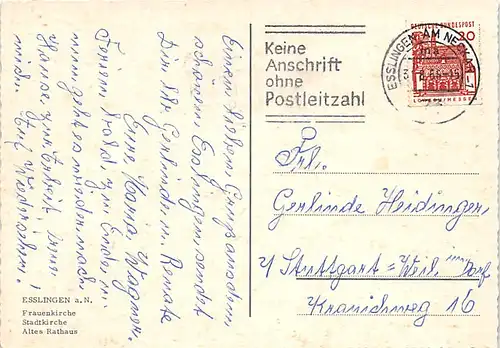 Einen lieben Gruß aus dem
schönen Esslingen sendet
Dir lb. Gerlinde u. Renate
Eure Maria Wagner.
Ferien bald zu Ende u.
nun geht es wieder nach
Hause zur Arbeit, immer
mich. Auf Wiedersehen!
ESSLINGEN a. N.
Frauenkirche
Stadtkirche
Altes Rathaus
Keine
Anschrift
ohne
Postleitzahl
ESSLINGEN AM NECKAR 1
DEUTSCHE BUNDESPOST
20
LORSCH/HESSEN
Frl.
Gerlinde Heidinger,
7 Stuttgart = Weil im Dorf
Kranichweg 16